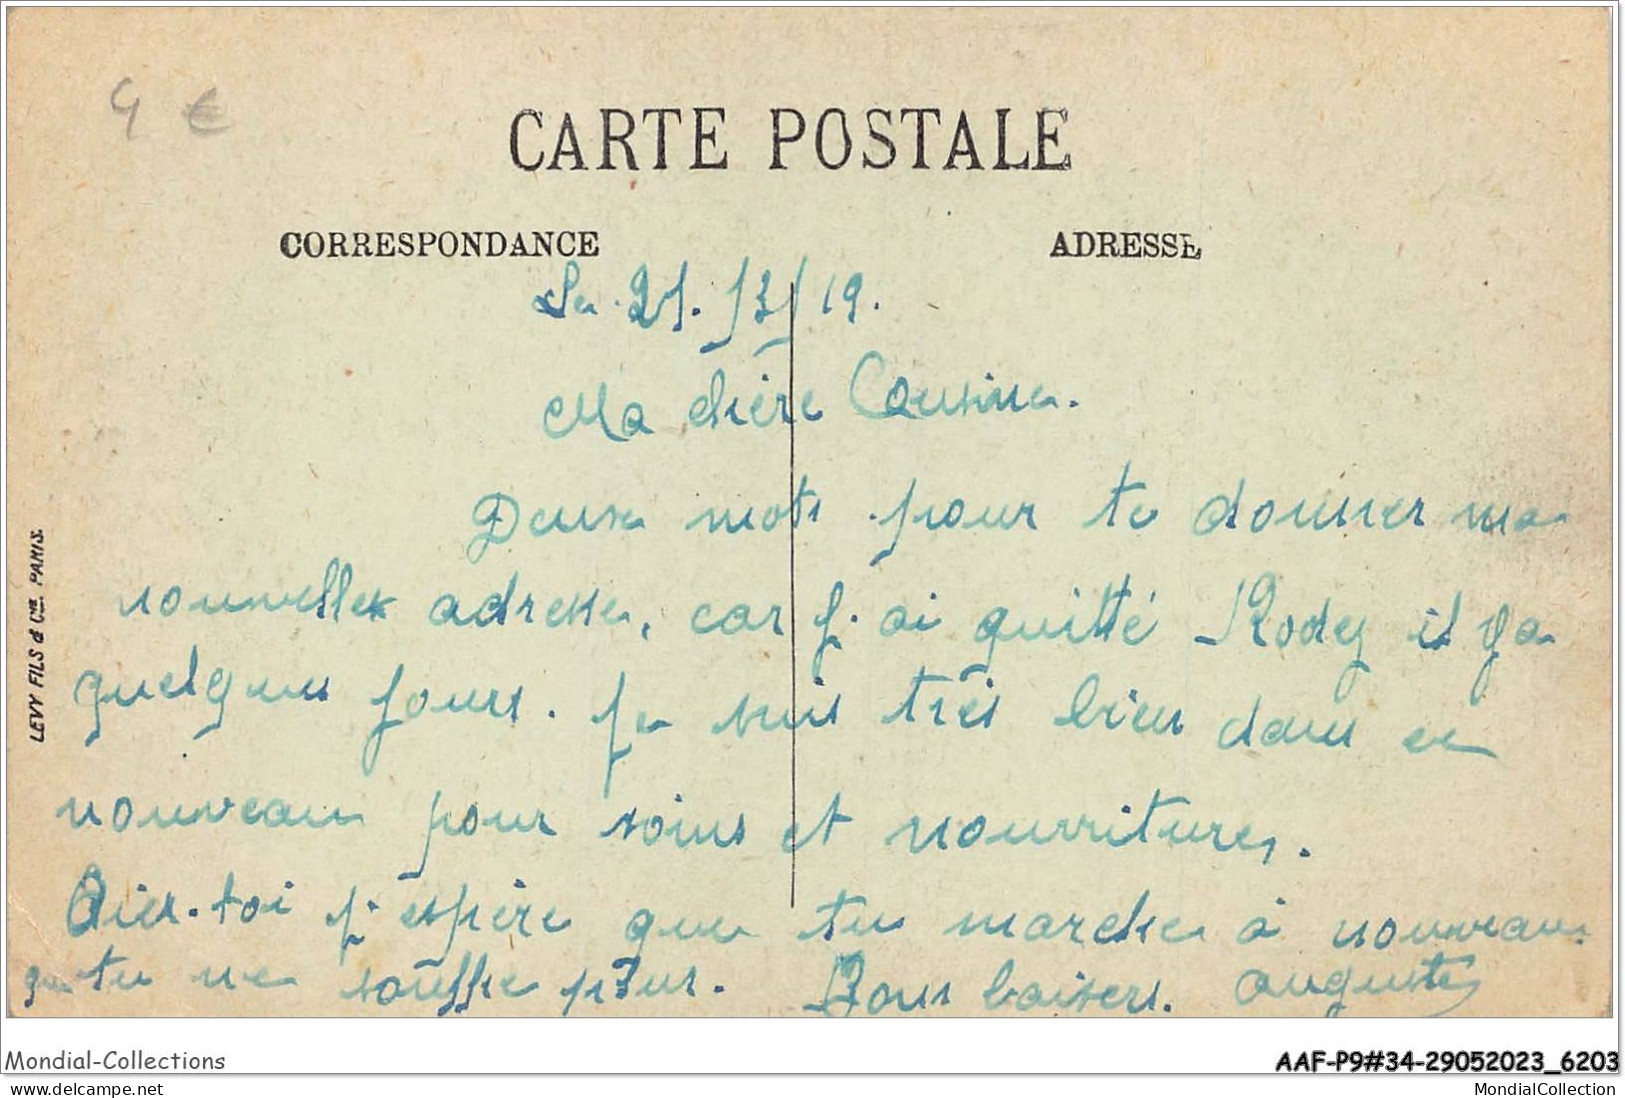 4 €
CARTE POSTALE
CORRESPONDANCE
ADRESSE
Le 21. /3/19.
Ma chère Cousine.
Deux mots pour te donner ma
nouvelle adresse, car j'ai quitté Rodez il y a
quelques jours. Je suis très bien dans ce
nouveau pour soins et nourriture.
toi j'espère que tu marche à nouveau
que tu ne souffre plus. Bons baisers. Auguste
LEVY FILS & Cie. PARIS.
Mondial-Collections
AAF-P9#34-29052023_6203
www.delcampe.net
MondialCollection